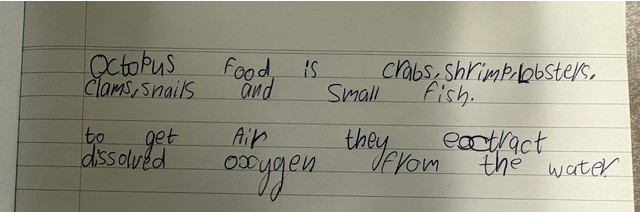 Octopus food is crabs, shrimp, Lobsters,
Clams, snails and Small fish.
to get Air they extract
dissolved oxygen from the water